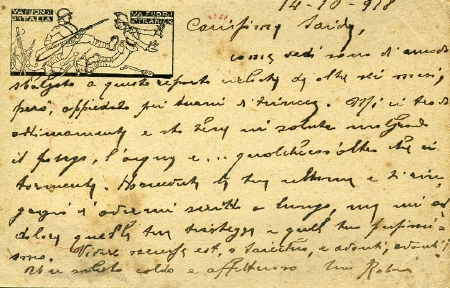 VA FUORI D'ITALIA
VA FUORI O STRANIER
14-10-918
Carissimo Sandro,
come vedi sono di nuovo
a questo reparto da oltre sei mesi,
però, appiedato pei turni di trincea. Mi ci trovo
ottimamente e sto bene in salute malgrado
il fango, l'acqua e... qualchecos'altro che ci
tormenta. Ho ricevuto la tua ultima e ti rin-
grazio d'avermi scritto a lungo, ma mi ad-
dolora quella tua tristezza e quel tuo pessimi-
smo. Vivere necesse est, e avanti, avanti!
Un saluto caldo e affettuoso tuo